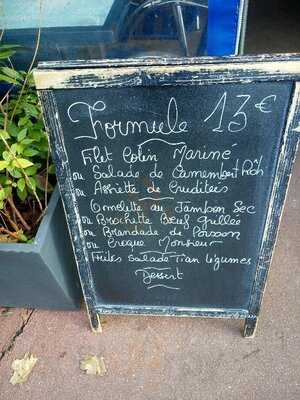 Formule 13€
Filet Colin Marine
ou Salade de Camembert Rôti
ou Assiette de Crudités
Omelette au Jambon Sec
ou Brochette Bœuf grillée
ou Brandade de Poisson
ou Croque Monsieur
Frites Salade Tian légumes
Dessert